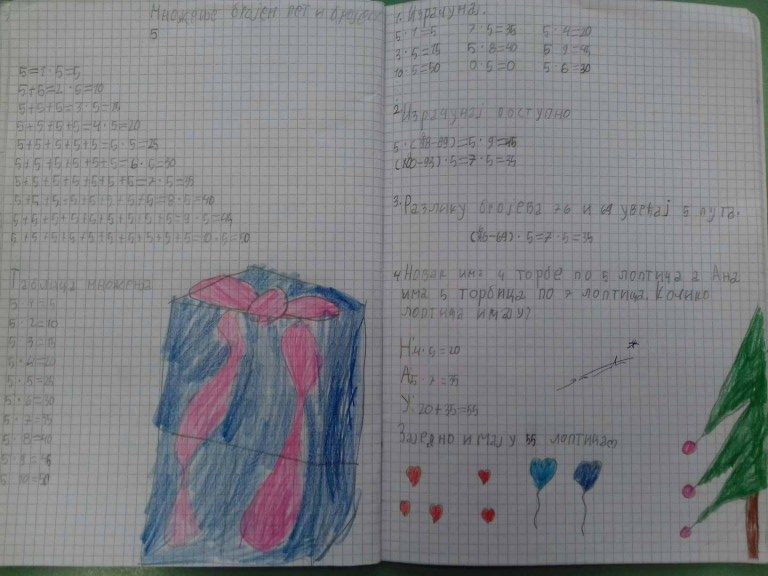 Множење бројем пет и бројем
5
5=1·5=5
5+5=2·5=10
5+5+5=3·5=15
5+5+5+5=4·5=20
5+5+5+5+5=5·5=25
5+5+5+5+5+5=6·5=30
5+5+5+5+5+5+5=7·5=35
5+5+5+5+5+5+5+5=8·5=40
5+5+5+5+5+5+5+5+5=9·5=45
5+5+5+5+5+5+5+5+5+5=10·5=50
Таблица множења
5·1=5
5·2=10
5·3=15
5·4=20
5·5=25
5·6=30
5·7=35
5·8=40
5·9=45
5·10=50
1. Израчунај.
5·1=5 7·5=35 5·4=20
3·5=15 5·8=40 5·9=45
10·5=50 0·5=0 5·6=30
2. Израчунај поступно
5·( )=5·9=45
(100-93)·5=7·5=35
3. Разлику бројева 76 и 69 увећај 5 пута.
(76-69)·5=7·5=35
4. Новак има 4 торбе по 5 лоптица а Ана
има 5 торбица по 7 лоптица. Колико
лоптица имају?
Н: 4·5=20
А: 5·7=35
У: 20+35=55
Заједно имају 55 лоптица